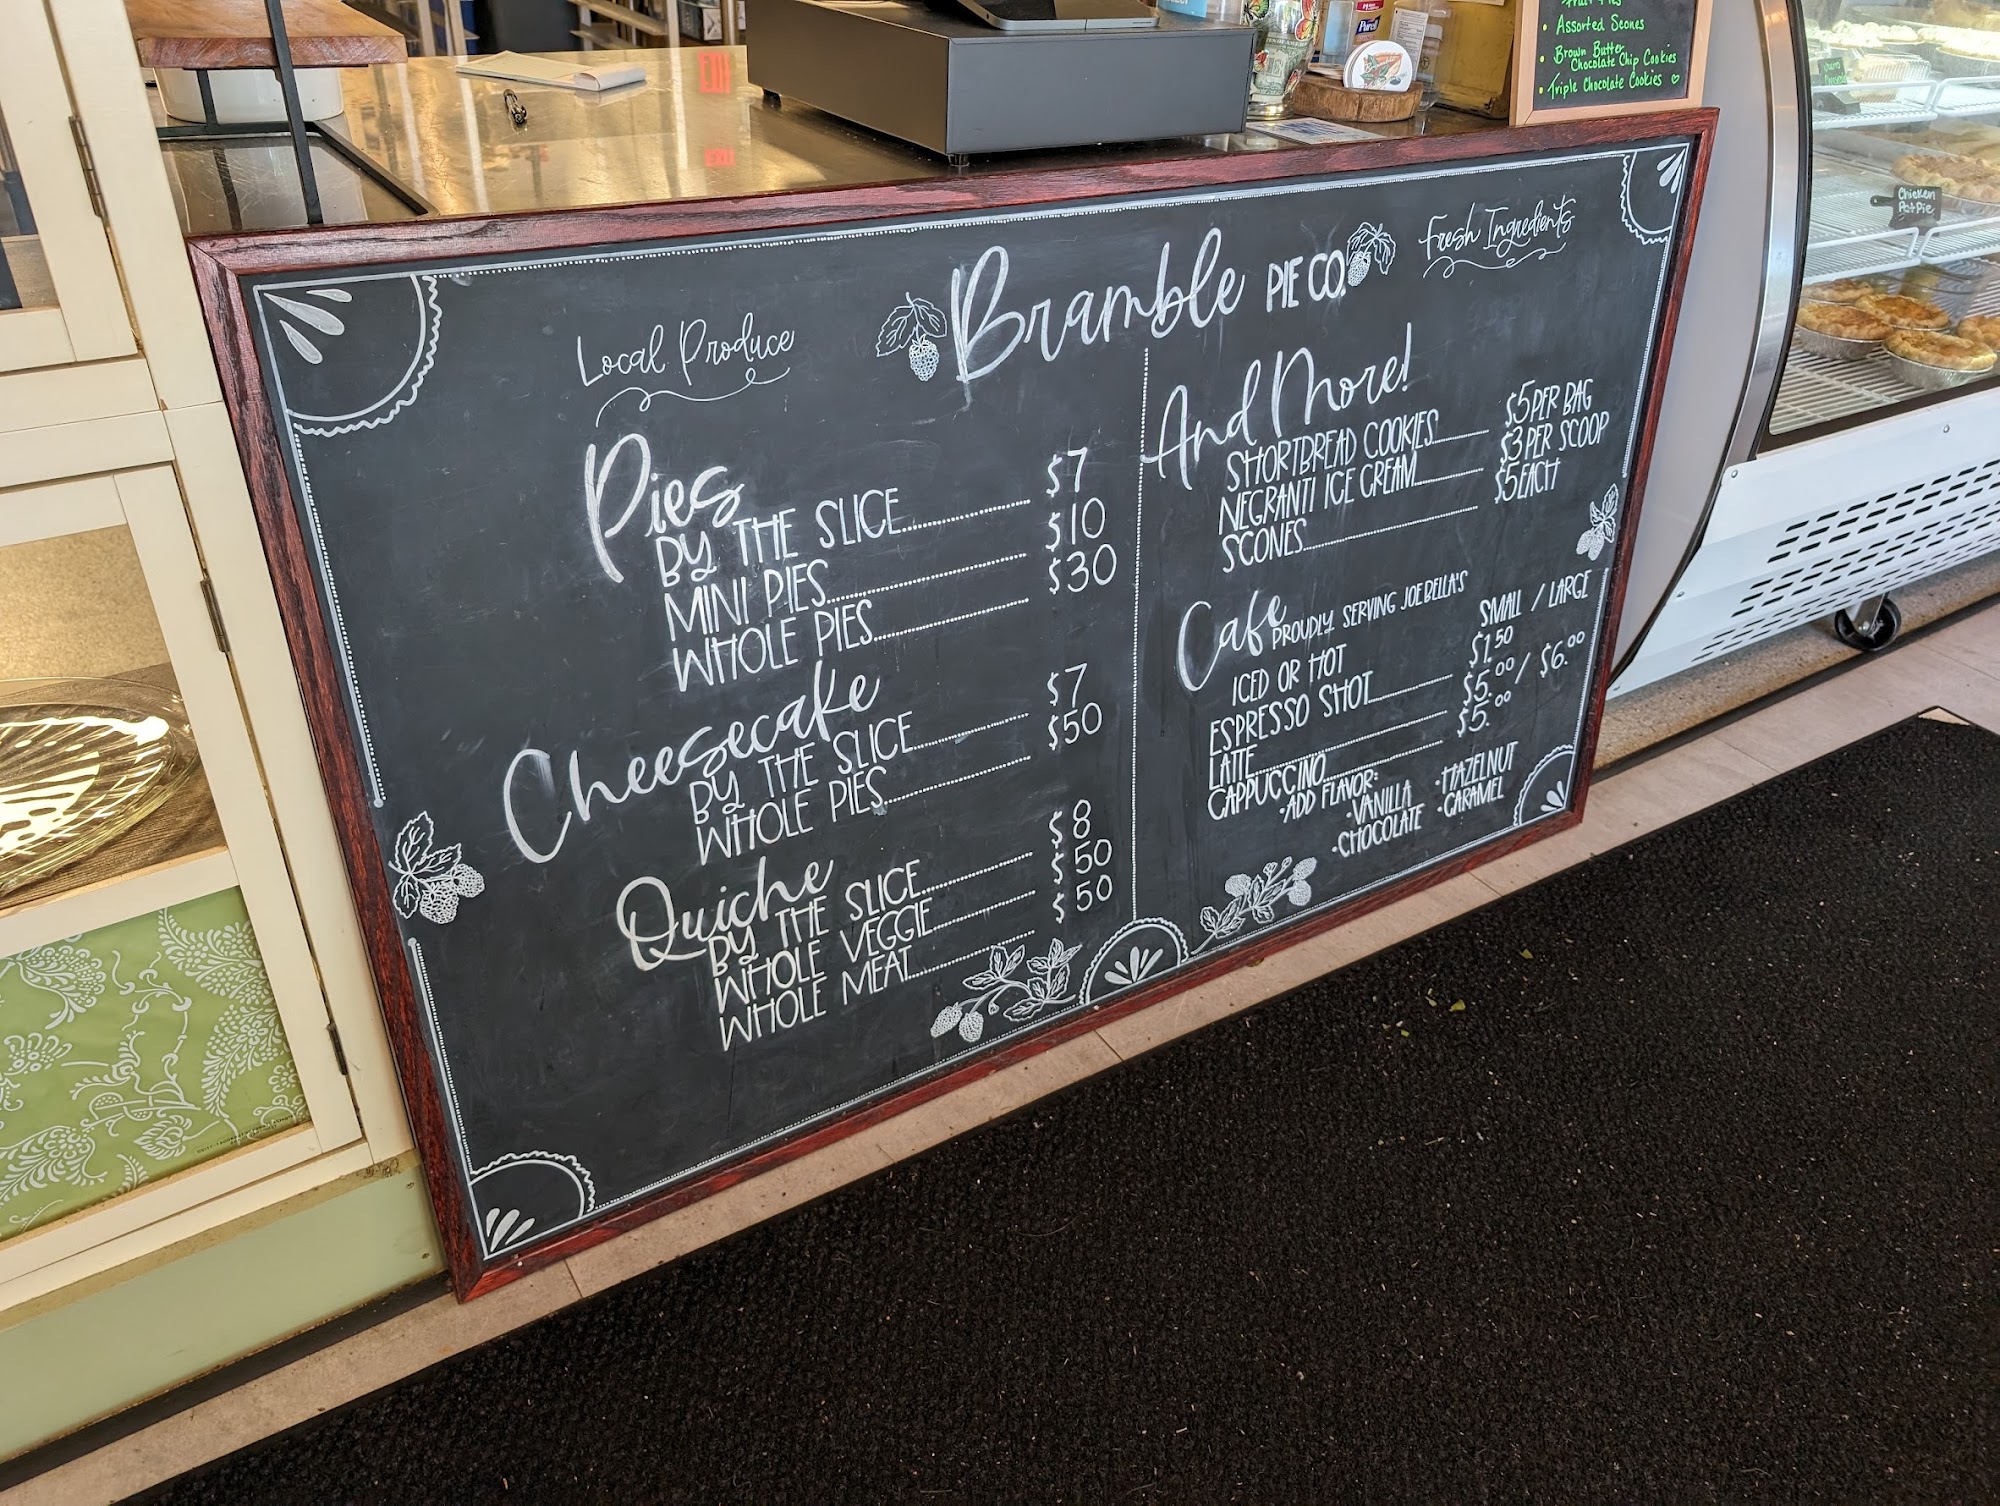 Fruit Pies
• Assorted Scones
• Brown Butter
Chocolate Chip Cookies
• Triple Chocolate Cookies
EXIT
Purell
Chicken
Pot Pie
Local Produce
Bramble PIE CO.
Fresh Ingredients
Pies
BY THE SLICE $7
MINI PIES $10
WHOLE PIES $30
Cheesecake
BY THE SLICE $7
WHOLE PIES $50
Quiche
BY THE SLICE $8
WHOLE VEGGIE $50
WHOLE MEAT $50
And More!
SHORTBREAD COOKIES $5 PER BAG
NEGRANTI ICE CREAM $3 PER SCOOP
SCONES $5 EACH
Cafe PROUDLY SERVING JOEBELLA'S
ICED OR HOT SMALL / LARGE
ESPRESSO SHOT $1.50
LATTE $5.00 / $6.00
CAPPUCCINO $5.00
•ADD FLAVOR:
•VANILLA •HAZELNUT
•CHOCOLATE •CARAMEL